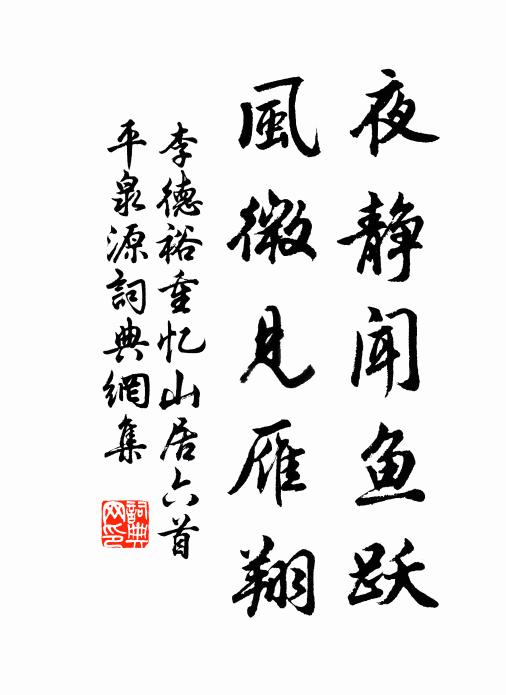 夜静闻鱼跃
風微見雁翔
李德裕重忆山居六首
平泉源詞典網集
詞典
网印